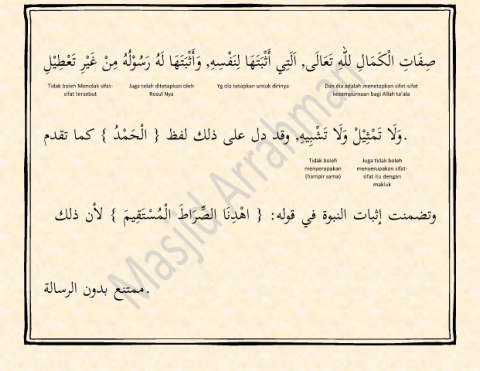 صِفَاتِ الْكَمَالِ لِلّٰهِ تَعَالَى, الَتِي أَثْبَتَهَا لِنَفْسِهِ, وَأَثْبَتَهَا لَهُ رَسُوْلُهُ مِنْ غَيْرِ تَعْطِيْلِ
Dan dia adalah menetapkan sifat-sifat kesempurnaan bagi Allah ta'ala
Yg dia tetapkan untuk dirinya
Juga telah ditetapkan oleh Rosul Nya
Tidak boleh Menolak sifat-sifat tersebut
وَلَا تَمْثِيْلْ وَلَا تَشْبِيهِ, وقد دل على ذلك لفظ { الْحَمْدُ } كما تقدم.
Juga tidak boleh menyerupakan sifat-sifat itu dengan makluk
Tidak boleh menyerupakan (hampir sama)
وتضمنت إثبات النبوة في قوله: { اهْدِنَا الصِّرَاطَ الْمُسْتَقِيمَ } لأن ذلك
ممتنع بدون الرسالة.
Masjid Arrahman